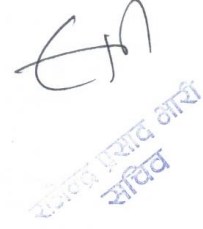 राजेन्द्र प्रसाद आरी
सचिव